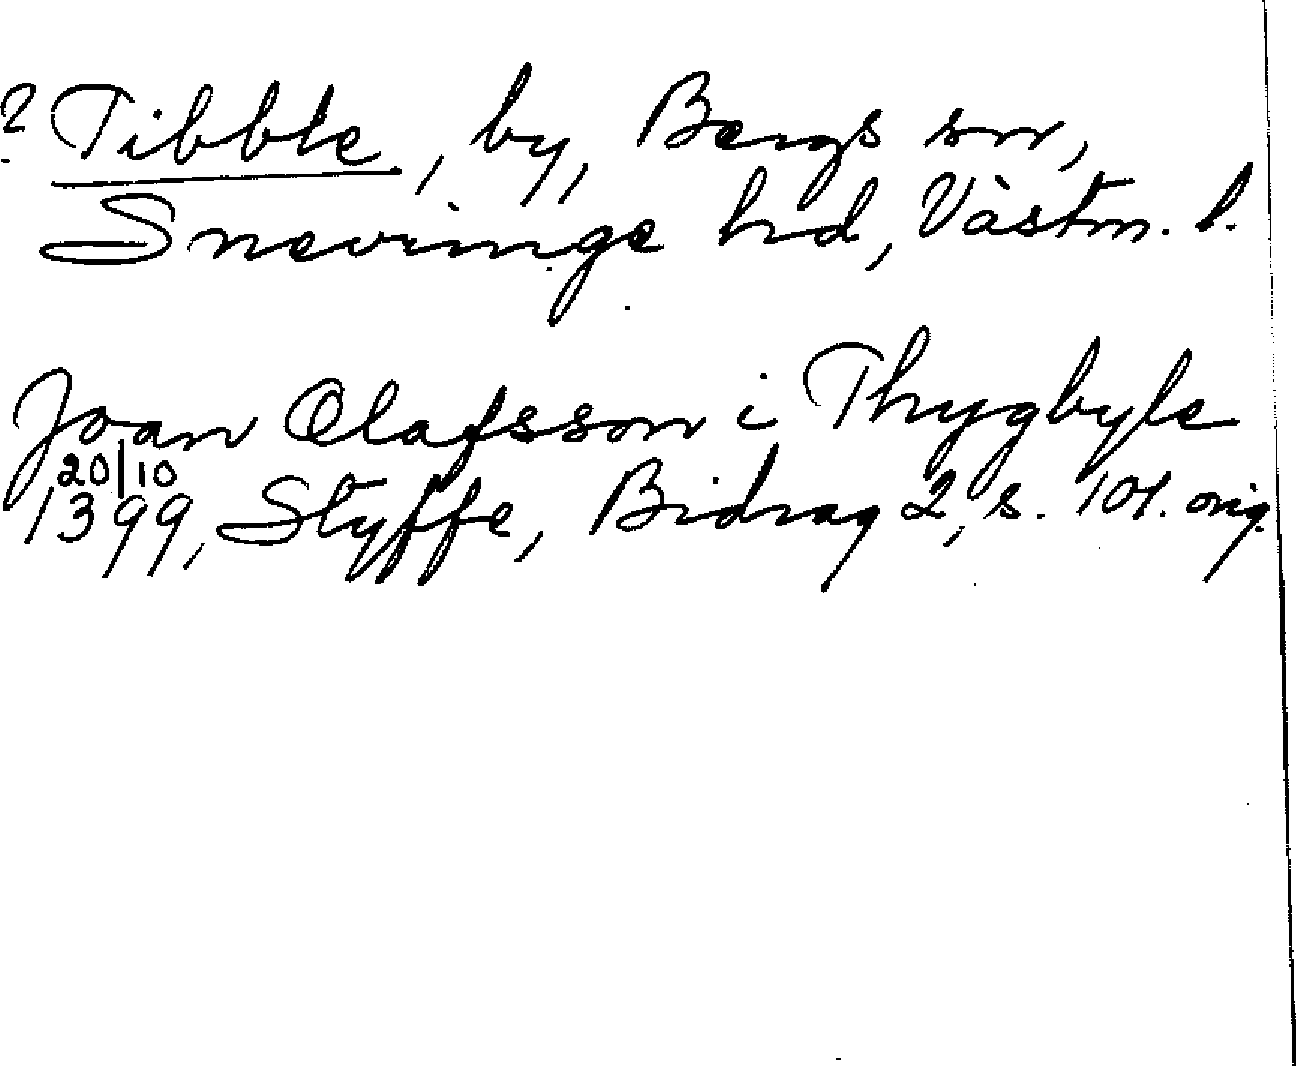 ? Tibble, by, Bergs sn,
Snevringe hd, Västm. l.
Joan Olafsson i Thygbyle
20/10
1399, Styffe, Bidrag 2, s. 101. orig.